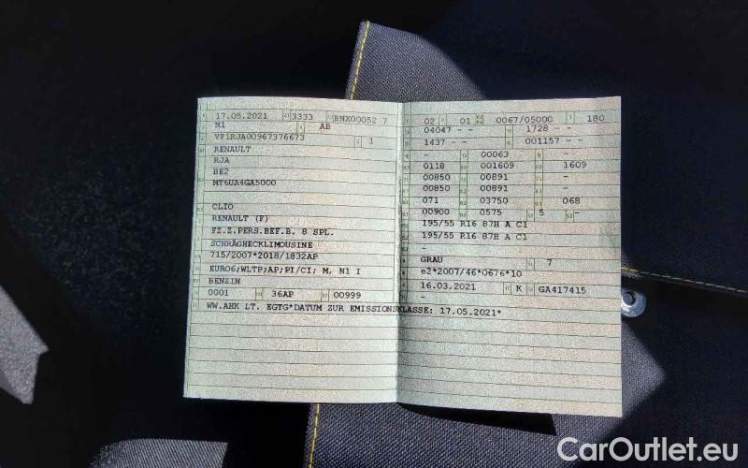 17.05.2021 3333 BNX00052 7
M1 AB
VF1RJA00967376673 1
RENAULT
RJA
BE2
MT6UA4GA5000
CLIO
RENAULT (F)
FZ.Z.PERS.BEF.B. 8 SPL.
SCHRÄGHECKLIMOUSINE
715/2007*2018/1832AP
EURO6;WLTP;AP;PI/CI; M, N1 I
BENZIN
0001 36AP 00999
02 01 0067/05000 180
04047 - - 1728 - -
1437 - - 001157 - -
- 00063 -
0118 001609 1609
00850 00891 -
00850 00891 -
071 03750 068
00900 0575 5 -
195/55 R16 87H A C1
195/55 R16 87H A C1
-
GRAU 7
e2*2007/46*0676*10
16.03.2021 K GA417415
-
WW.AHK LT. EGTG*DATUM ZUR EMISSIONSKLASSE: 17.05.2021*
CarOutlet.eu